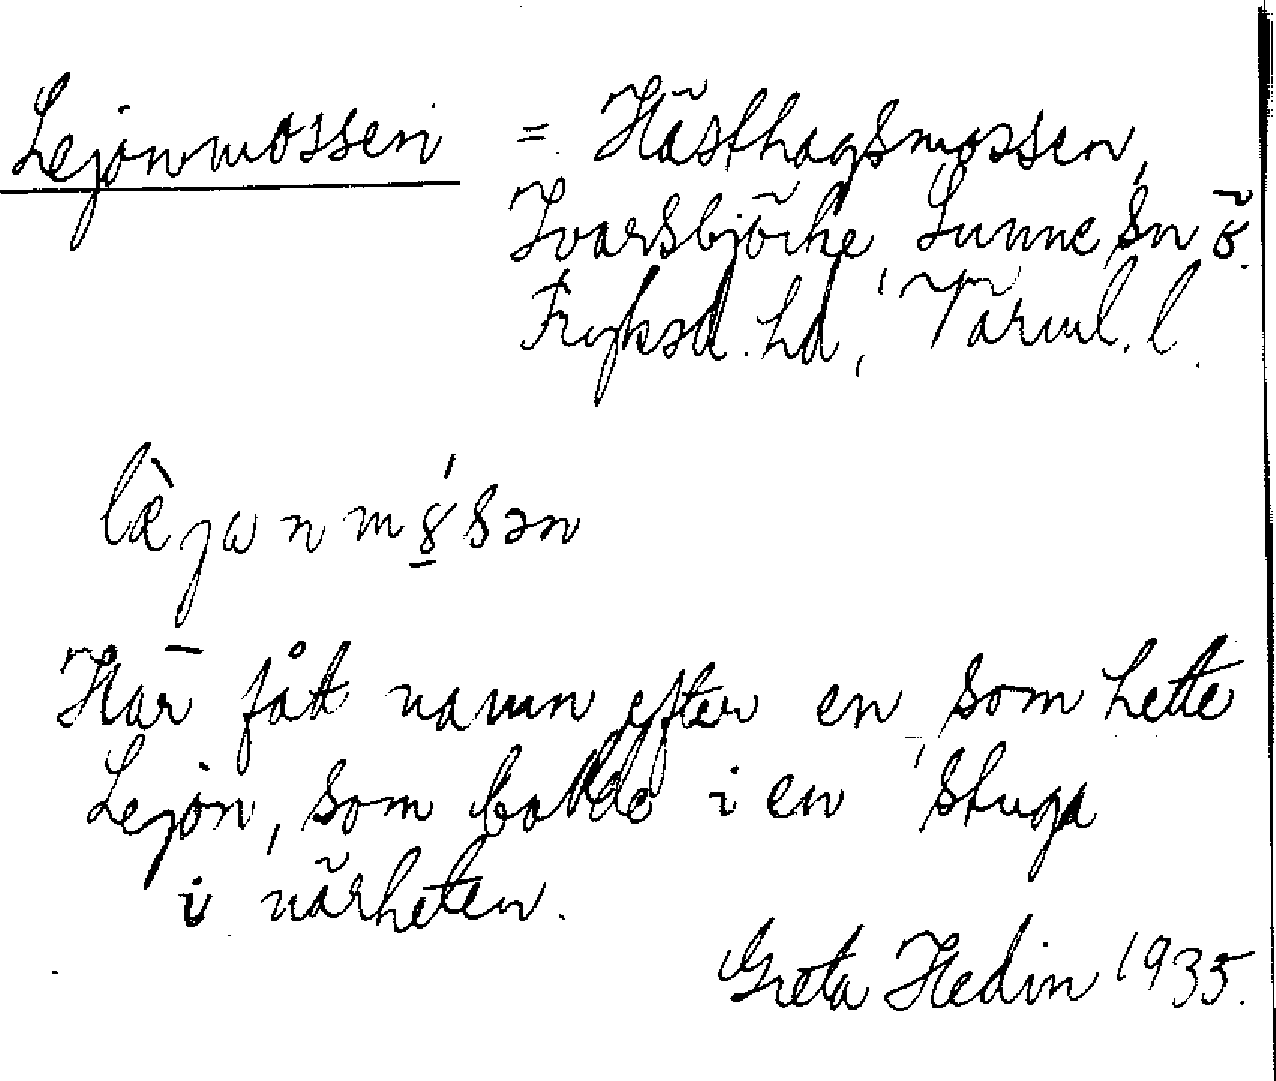 Lejonmossen = Hästhagsmossen,
Ivarsbjörke, Sunne sn ö.
Fryksd. hd, Värml. l.
Har fåt namn efter en, som hette
Lejon, som bodde i en stuga
i närheten.
Greta Hedin 1935.